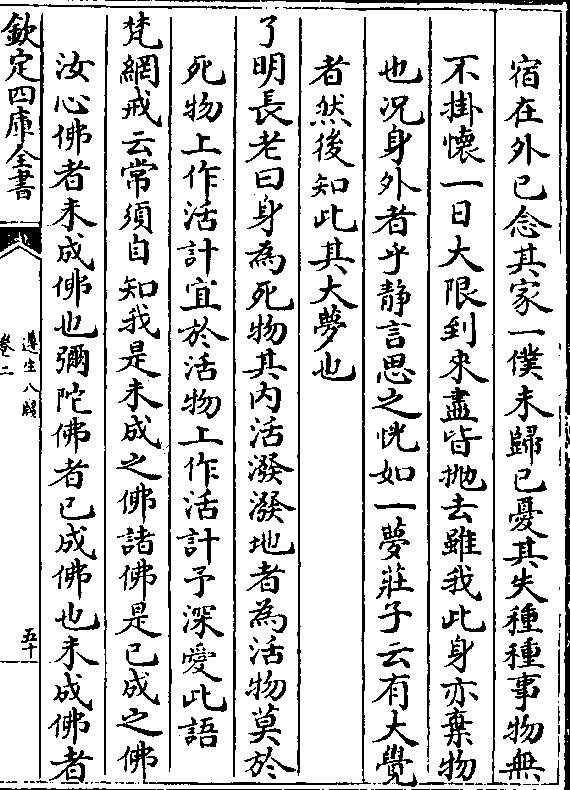 宿在外已念其家一僕未歸已憂其失種種事物無
不掛懷一日大限到來盡皆抛去雖我此身亦棄物
也况身外者乎静言思之恍如一夢莊子云有大覺
者然後知此其大夢也
了明長老曰身為死物其内活潑潑地者為活物莫於
死物上作活計宜於活物上作活計予深愛此語
梵網戒云常須自知我是未成之佛諸佛是已成之佛
汝心佛者未成佛也彌陀佛者已成佛也未成佛者
欽定四庫全書
遵生八牋
卷二
五十